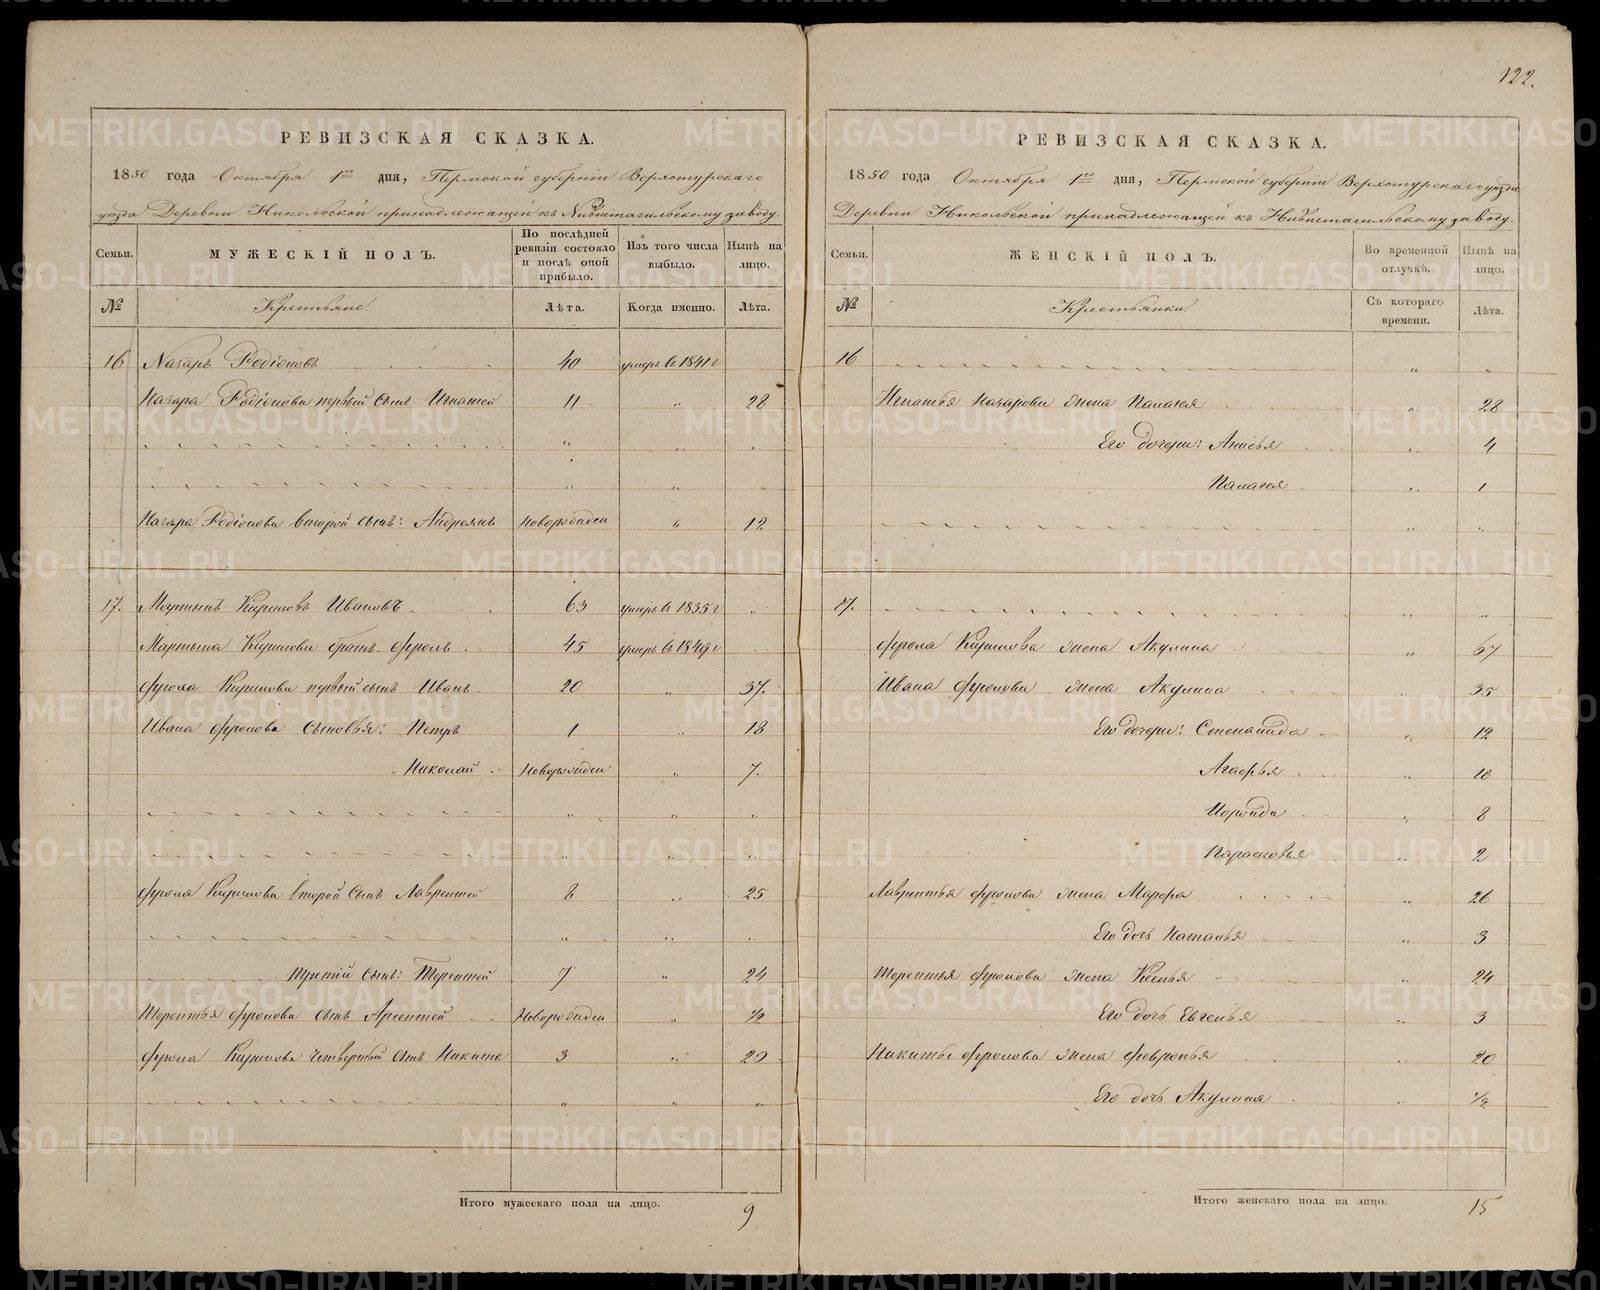 122.
РЕВИЗСКАЯ СКАЗКА.
1850 года Октября 1го дня, Пермской губерніи Верхотурскаго
уѣзда Деревни Никольской принадлежащей къ Нижнетагильскому заводу.
Семьи. МУЖЕСКІЙ ПОЛЪ. По послѣдней ревизіи состояло и послѣ оной прибыло. Изъ того числа выбыло. Нынѣ на лицо.
№ Крестьяне. Лѣта. Когда именно. Лѣта.
16 Назаръ Родіоновъ 40 умеръ въ 1841 г
Назара Родіонова первый сынъ Игнатей 11 " 28
Назара Родіонова второй сынъ: Андреянъ Новорожден " 12
17. Мартынъ Кириловъ Ивановъ 63 умеръ въ 1835 г "
Мартына Кирилова братъ Фролъ 45 умеръ въ 1849 г
Фрола Кирилова первый сынъ Иванъ 20 " 37.
Ивана Фролова сыновья: Петръ 1 " 18
Николай Новорожден " 7.
Фрола Кирилова второй сынъ Лаврентей 8 " 25
третій сынъ: Терентей 7 " 24
Терентья Фролова сынъ Арсентей Новорожден " 1/2
Фрола Кирилова четвертый сынъ Никита 3 " 20
Итого мужескаго пола на лицо. 9
РЕВИЗСКАЯ СКАЗКА.
1850 года Октября 1го дня, Пермской губерніи Верхотурскаго уѣзда
Деревни Никольской принадлежащей къ Нижнетагильскому заводу.
Семьи. ЖЕНСКІЙ ПОЛЪ. Во временной отлучкѣ. Нынѣ на лицо.
№ Крестьянки. Съ котораго времени. Лѣта.
16 " "
Игнатья Назарова жена Палагея " 28
Его дочери: Анисья " 4
Палагея " 1
17. " "
Фрола Кирилова жена Акулина " 67
Ивана Фролова жена Акулина " 35
Его дочери: Степанида " 12
Агафья " 10
" 8
Парасковья " 2
Лаврентья Фролова жена Марфа " 26
Его дочь Наталья " 3
Терентья Фролова жена " 24
Его дочь Евгенья " 3
Никиты Фролова жена Февронья " 20
Его дочь Акулина " 1/2
Итого женскаго пола на лицо. 15
METRIKI.GASO-URAL.RU